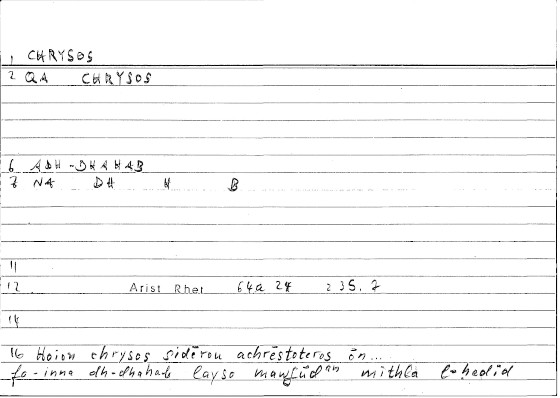 1 CHRYSOS
2 QA CHRYSOS
6 ADH-DHAHAB
7 NA DH H B
11
12 Arist Rhet 64a 24 235.7
14
16 Hoion chrysos sidērou achrēstoteros ōn...
fa-inna dh-dhahab laysa mithla l-ḥadīd